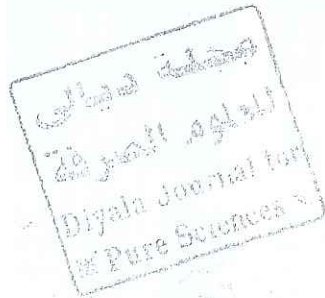 مجلة ديالى
للعلوم الصرفة
Diyala Journal for
Pure Sciences